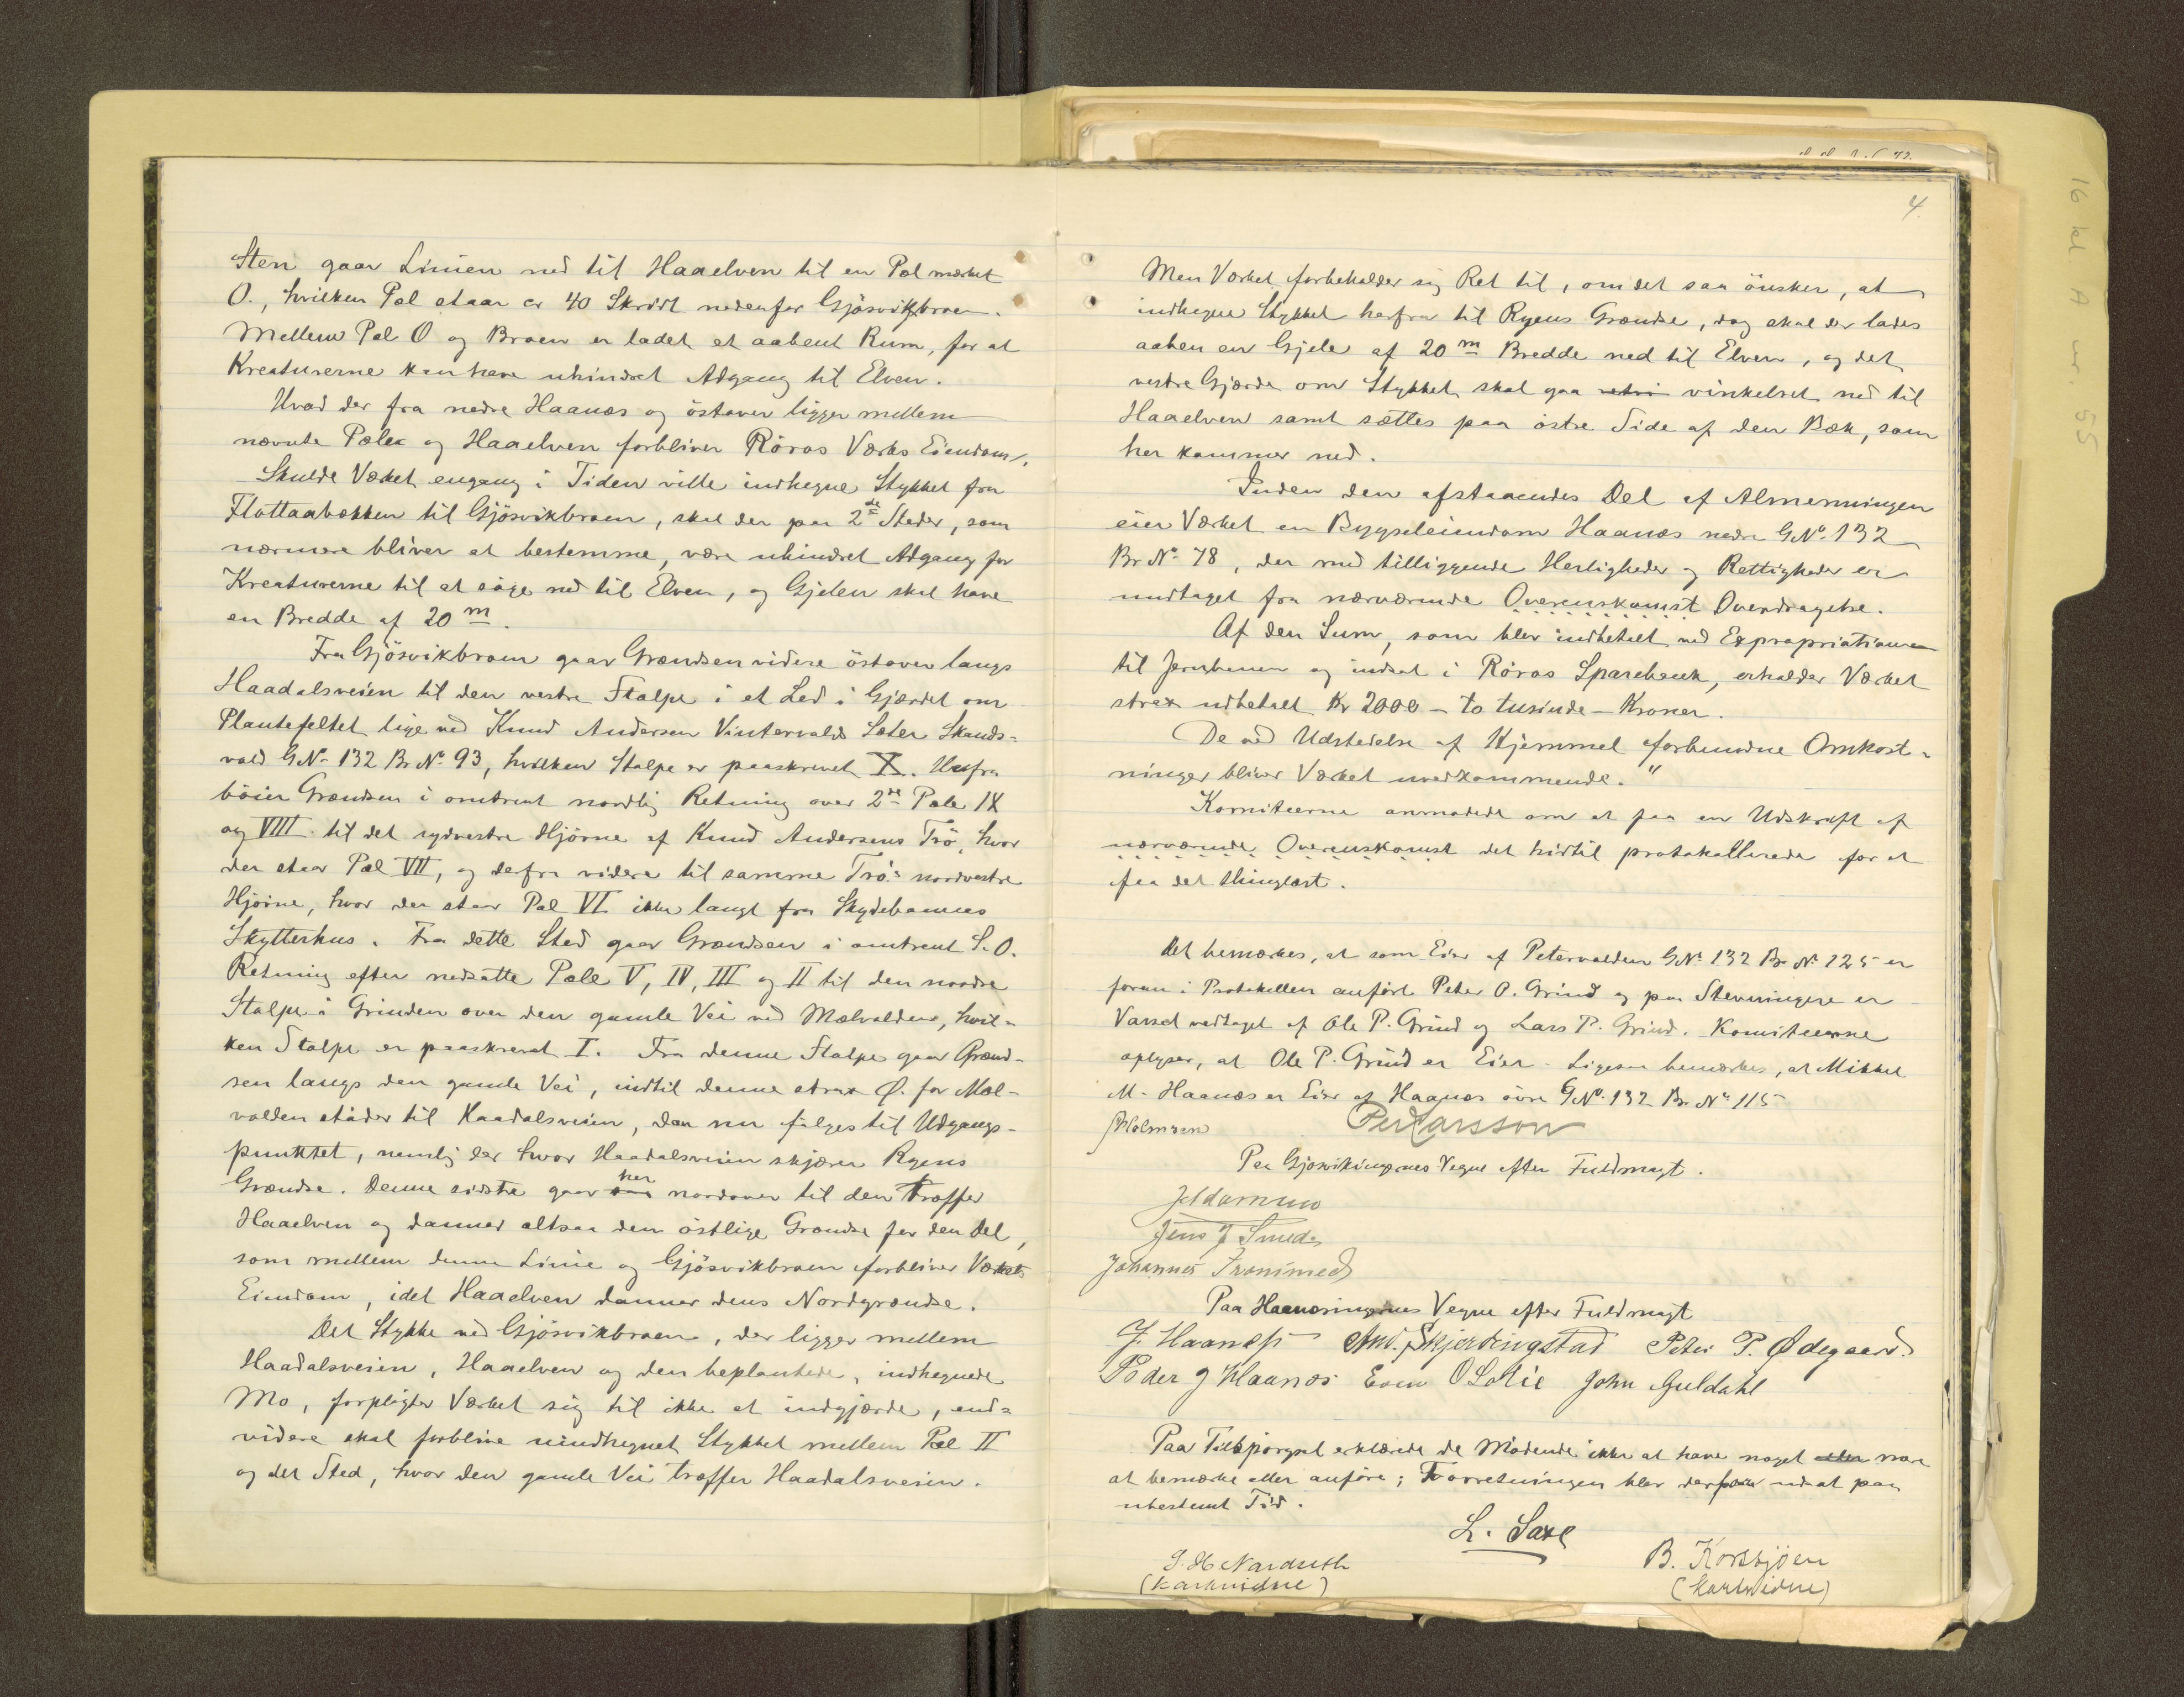 Sten gaar Linien ned til Haaelven til en Pæl mærket
O., hvilken Pæl staar ca 40 Skridt nedenfor Gjösvikbroen.
Mellem Pæl O og Broen er ladet et aabent Rum, for at
Kreaturerne kan have uhindret Adgang til Elven.
Hvad der fra nedre Haanæs og östover ligger mellem
nævnte Pæler og Haaelven forbliver Röros Værks Eiendom.
Skulde Værket engang i Tiden ville indhegne Stykket fra
Flottaabækken til Gjösvikbroen, skal der paa 2de Steder, som
nærmere bliver at bestemme, være uhindret Adgang for
Kreaturerne til at söge ned til Elven, og Gjelen skal have
en Bredde af 20 m.
Fra Gjösvikbroen gaar Grændsen videre östover langs
Haadalsveien til den vestre Stolpe i et Led i Gjærdet om
Plantefeltet lige ved Knud Andersen Vintervolds Sæter Skands-
vold GNo 132 BrNo 93, hvilken Stolpe er paaskrevet X. Herfra
böier Grændsen i omtrent nordlig Retning over 2de Pæle IX
og VIII til det sydvestre Hjörne af Knud Andersens Trö, hvor
der staar Pæl VII, og derfra videre til samme Trö's nordvestre
Hjörne, hvor der staar Pæl VI ikke langt fra Skydebanens
Skytterhus. Fra dette Sted gaar Grændsen i omtrent S.O.
Retning efter nedsatte Pæle V, IV, III og II til den nordre
Stolpe i Grinden over den gamle Vei ved Mælvolden, hvil-
ken Stolpe er paaskrevet I. Fra denne Stolpe gaar Grænd-
sen langs den gamle Vei, indtil denne strax Ø. for Mæl-
volden stöder til Haadalsveien, der nu fölges til Udgangs-
punktet, nemlig der hvor Haadalsveien skjærer Ryens
Grændse. Denne sidste gaar her nordover til den træffer
Haaelven og danner altsaa den östlige Grændse for den Del,
som mellem denne Linie og Gjösvikbroen forbliver Værkets
Eiendom, idet Haaelven danner dens Nordgrændse.
Det Stykke ved Gjösvikbroen, der ligger mellem
Haadalsveien, Haaelven og den beplantede, indhegnede
Mo, forpligter Værket sig til ikke at indgjærde, end-
videre skal forblive uindhegnet Stykket mellem Pæl II
og det Sted, hvor den gamle Vei træffer Haadalsveien.
4.
Men Værket forbeholder sig Ret til, om det saa önsker, at
indhegne Stykket herfra til Ryens Grændse, dog skal der lades
aaben en Gjele af 20 m Bredde ned til Elven, og det
vestre Gjærde om Stykket skal gaa vinkelret ned til
Haaelven samt sættes paa östre Side af den Bæk, som
her kommer ned.
Inden den afstaaendes Del af Almenningen
eier Værket en Bygseleiendom Haanæs nedre GNo 132
BrNo 78, der med tilliggende Herligheder og Rettigheder er
undtaget fra nærværende Overenskomst Overdragelse.
Af den Sum, som blev indbetalt ved Expropriationen
til Jernbanen og indsat i Röros Sparebank, erholder Værket
strax udbetalt Kr 2000 – to tusinde – Kroner.
De ved Udstedelse af Hjemmel forbundne Omkost-
ninger bliver Værket uvedkommende."
Komiteerne anmodede om at faa en Udskrift af
nærværende Overenskomst det hidtil protokollerede for at
faa det thinglæst.
Det bemærkes, at som Eier af Petervolden GNo 132 BrNo 125 er
foran i Protokollen anfört Peter O. Grind og paa Stevningen er
Varsel vedtaget af Ole P. Grind og Lars P. Grind. Komiteerne
oplyser, at Ole P. Grind er Eier. Ligesaa bemærkes, at Mikkel
M. Haanæs er Eier af Haanæs övre GNo 132 BrNo 115
JHolmsen Per Larsson
Paa Gjösvikingernes Vegne efter Fuldmagt.
Jens J Smeds
Johannes Tronsmed
Paa Haanæsingernes Vegne efter Fuldmagt
J. Haanæs And. Skjerdingstad Peter P. Ødegaard.
Peder J Haanæs Even O Lolie John Guldahl
Paa Tilspörgsel erklærede de Mödende ikke at have noget mere
at bemærke eller anföre; Forretningen blev derfor udsat paa
ubestemt Tid.
L. Saxe
J. H. Nordseth B. Korssjøen
(kartvidne) (kartvidne)
16 kl A nr 55